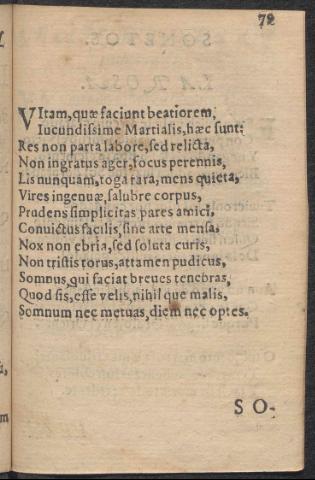 72
VItam, quæ faciunt beatiorem,
Iucundissime Martialis, hæc sunt:
Res non parta labore, sed relicta,
Non ingratus ager, focus perennis,
Lis nunquam, toga rara, mens quieta,
Vires ingenuæ, salubre corpus,
Prudens simplicitas pares amici,
Conuictus facilis, sine arte mensa,
Nox non ebria, sed soluta curis,
Non tristis torus, attamen pudicus,
Somnus, qui faciat breues tenebras,
Quod sis, esse velis, nihil que malis,
Somnum nec metuas, diem nec optes.
S O-